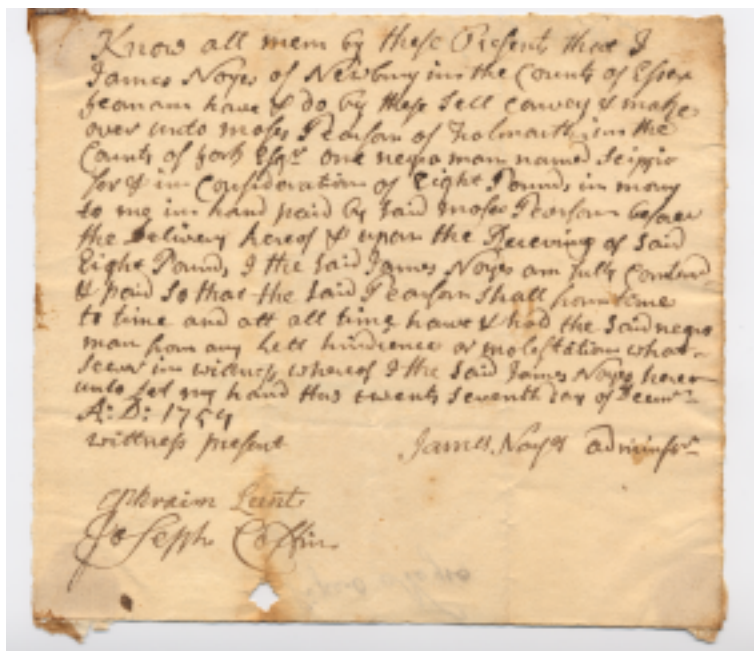 Know all men by these Present that I
James Noyes of Newbury in the County of Essex
yeoman have & do by these Sell convey & make
over unto Moses Pearson of Falmouth in the
County of York Esqr. one negro man named Scippio
for & in Consideration of Eight Pounds in mony
to me in hand paid by said Moses Pearson before
the Delivery hereof & upon the Receiving of Said
Eight Pounds I the Said James Noyes am fully
& paid So that the Said Pearson Shall from time
to time and att all times have & hod the Said negro
man from any Lett hindrence or molestation what
soever in witness whereof I the Said James Noyes here
unto Set my hand this twenty Seventh Day of Decmr.
A: D: 1754
wittness present James Noyes adminisr
ephraim Lunt
Joseph Coffin